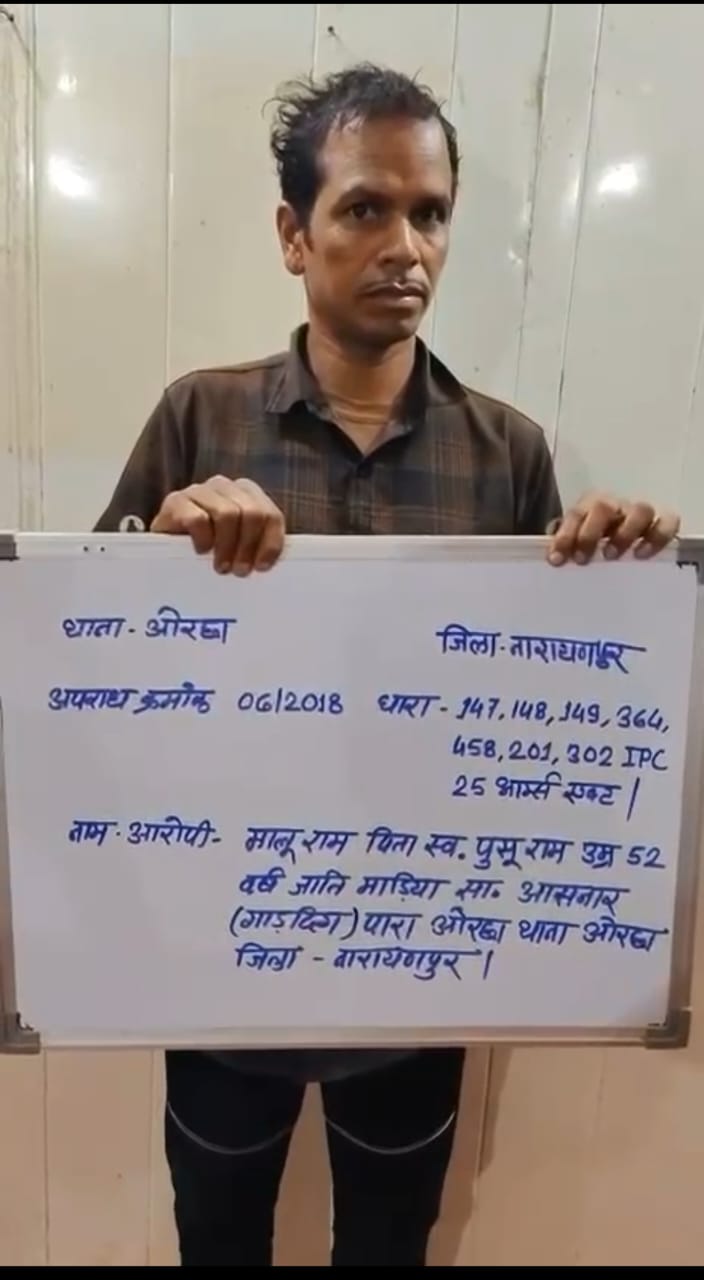 थाना - ओरछा
जिला - नारायणपुर
अपराध क्रमांक 06/2018 धारा - 147, 148, 149, 364,
458, 201, 302 IPC
25 आर्म्स एक्ट |
नाम - आरोपी - मालू राम पिता स्व. पुसू राम उम्र 52
वर्ष जाति माड़िया सा. आसनार
पारा ओरछा थाना ओरछा
जिला - नारायणपुर |